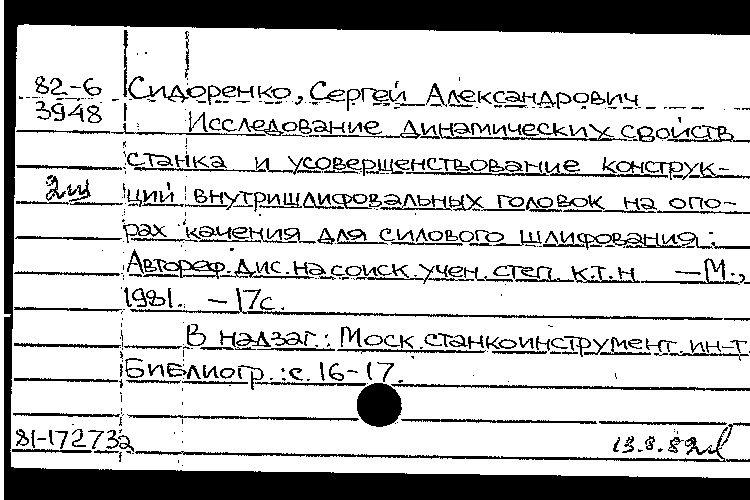 82-6 Сидоренко, Сергей Александрович
3948 Исследование динамических свойств
станка и усовершенствование конструк-
ций внутришлифовальных головок на опо-
рах качения для силового шлифования:
Автореф. дис. на соиск. учен. степ. к.т.н. — М.,
1981. — 17с.
В надзаг.: Моск. станкоинструмент. ин-т.
Библиогр.: с. 16-17.
81-172732